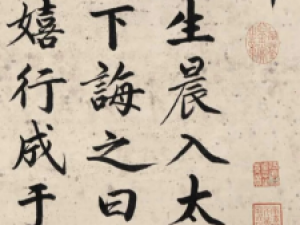 生晨入太
下誨之曰
嬉行成于